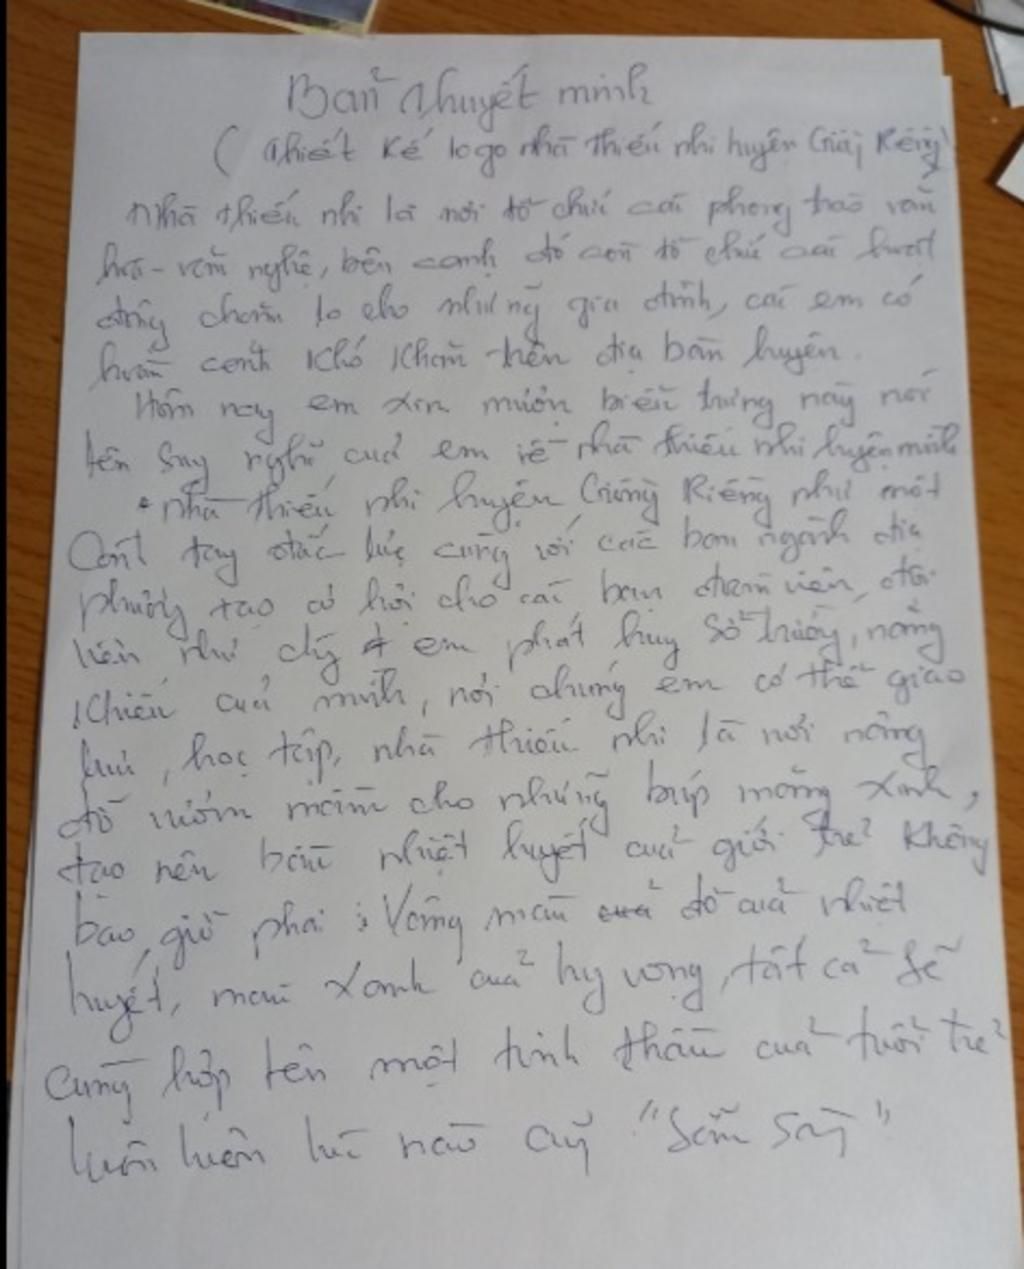 Bản thuyết minh
( thiết kế logo nhà thiếu nhi huyện Giồng Riềng)
Nhà thiếu nhi là nơi tổ chức các phong trào văn
hoá - văn nghệ, bên cạnh đó còn tổ chức các hoạt
động chăm lo cho những gia đình, các em có
hoàn cảnh khó khăn trên địa bàn huyện.
Hôm nay em xin mượn biểu trưng này nói
lên suy nghĩ của em về nhà thiếu nhi huyện mình
* nhà thiếu nhi huyện Giồng Riềng như một
Cánh tay đắc lực cùng với các ban ngành địa
phương tạo cơ hội cho các bạn đoàn viên, đội
viên như chúng em phát huy sở trường, năng
khiếu của mình, nơi chúng em có thể giao
lưu, học tập, nhà thiếu nhi là nơi nâng
đỡ ươm mầm cho những búp măng xinh,
tạo nên bầu nhiệt huyết của giới trẻ không
bao giờ phai : Vâng màu đỏ của nhiệt
huyết, màu xanh của hy vọng, tất cả sẽ
cùng hợp lên một tinh thần của tuổi trẻ
luôn luôn lúc nào cũng "Sẵn sàng"